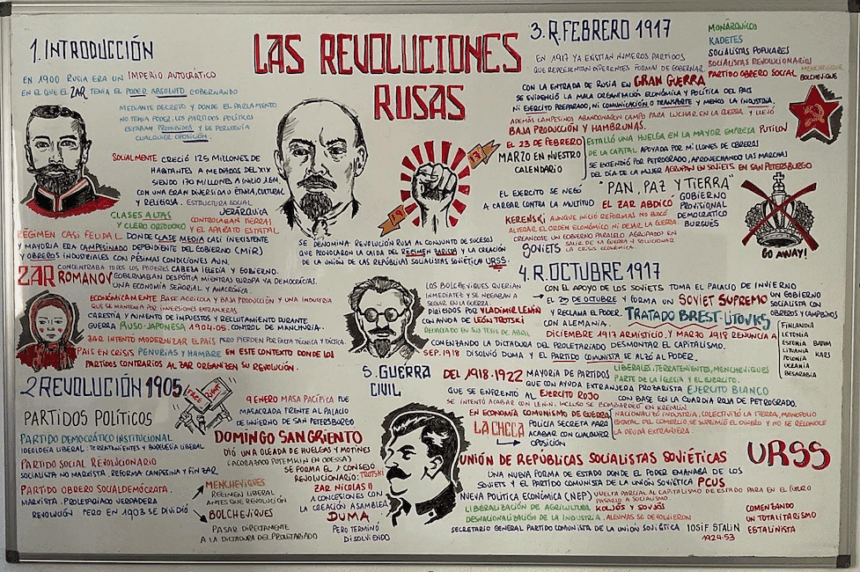 LAS REVOLUCIONES
RUSAS
1. INTRODUCCIÓN
EN 1900 RUSIA ERA UN IMPERIO AUTOCRÁTICO
EN EL QUE EL ZAR TENIA EL PODER ABSOLUTO GOBERNANDO
MEDIANTE DECRETO Y DONDE EL PARLAMENTO
NO TENIA PODER, LOS PARTIDOS POLÍTICOS
ESTABAN PROHIBIDOS Y SE PERSEGUIA
CUALQUIER OPOSICIÓN.
SOCIALMENTE CRECIÓ 125 MILLONES DE
HABITANTES A MEDIADOS DEL XIX
SIENDO 170 MILLONES A INICIO
CON UNA GRAN DIVERSIDAD ÉTNICA, CULTURAL
Y RELIGIOSA. ESTRUCTURA SOCIAL
JERÁRQUICA
CLASES ALTAS
Y CLERO ORTODOXO
CONTROLABAN TIERRAS
Y EL APARATO ESTATAL
RÉGIMEN CASI FEUDAL. DONDE CLASE MEDIA CASI INEXISTENTE
Y MAYORIA ERAN CAMPESINADO DEPENDIENTE DEL GOBIERNO (MIR)
Y OBREROS INDUSTRIALES CON PÉSIMAS CONDICIONES AUN.
ZAR ROMANOV
CONCENTRABA TODOS LOS PODERES CABEZA IGLESIA Y GOBIERNO.
GOBERNABAN DESPÓTIA MIENTRAS EUROPA VIA DEMOCRACIAS.
UNA ECONOMÍA SEÑORIAL Y ANACRÓNICA
ECONÓMICAMENTE BASE AGRÍCOLA Y BAJA PRODUCCIÓN Y UNA INDUSTRIA
QUE SE MANEJABA POR INVERSIONES EXTRANJERAS
CARESTÍA Y AUMENTO DE IMPUESTOS Y RECLUTAMIENTO DURANTE
GUERRA RUSO-JAPONESA 1904-05. CONTROL DE MANCHURIA.
ZAR INTENTO MODERNIZAR EL PAIS PERO PIERDEN POR FALTA TÉCNICA Y TÁCTICA.
PAIS EN CRISIS PENURIAS Y HAMBRE EN ESTE CONTEXTO DONDE LOS
PARTIDOS CONTRARIOS AL ZAR ORGANIZEN SU REVOLUCIÓN.
17
1917
SE DENOMINA REVOLUCIÓN RUSA AL CONJUNTO DE SUCESOS
QUE PROVOCARON LA CAIDA DEL RÉGIMEN ZARISTA Y LA CREACIÓN
DE LA UNION DE LAS REPÚBLICAS SOCIALISTAS SOVIÉTICA URSS.
2 REVOLUCIÓN 1905
PARTIDOS POLÍTICOS
PARTIDO DEMOCRÁTICO INSTITUCIONAL
IDEOLOGIA LIBERAL: TERRATENIENTES Y BURGUESÍA LIBERAL
PARTIDO SOCIAL REVOLUCIONARIO
SOCIALISTA NO MARXISTA. REFORMA CAMPESINA Y FIN ZAR
PARTIDO OBRERO SOCIALDEMÓCRATA.
MARXISTA. PROLETARIADO VERDADERA
REVOLUCIÓN PERO EN 1903 SE DIVIDIÓ
MENCHEVIQUES
RÉGIMEN LIBERAL
ANTES QUE REVOLUCIÓN
BOLCHEVIQUES
PASAR DIRECTAMENTE
A LA DICTADURA DEL PROLETARIADO
9 ENERO MASA PACÍFICA FUE
MASACRADA FRENTE AL PALACIO
DE INVIERNO DE SAN PETERSBURGO
DOMINGO SANGRIENTO
DIÓ UNA OLEADA DE HUELGAS Y MOTINES
(ACORAZADO POTEMKIN EN ODESSA)
SE FORMA EL 1 CONSEJO
REVOLUCIONARIO: TROTSKI
ZAR NICOLAS II
A CONCESIONES CON
LA CREACIÓN ASAMBLEA
DUMA
PERO TERMINÓ
DISOLVIENDO
3. R. FEBRERO 1917
EN 1917 YA EXISTIAN NÚMEROS PARTIDOS
QUE REPRESENTAN DIFERENTES FORMAS DE GOBERNAR
MONÁRQUICOS
KADETES
SOCIALISTAS POPULARES
SOCIALISTAS REVOLUCIONARIOS
PARTIDO OBRERO SOCIAL
MENCHEVIQUE
BOLCHEVIQUE
CON LA ENTRADA DE RUSIA EN GRAN GUERRA
SE EVIDENCIÓ LA MALA ORGANIZACIÓN ECONÓMICA Y POLÍTICA DEL PAIS
NI EJERCITO PREPARADO, NI COMUNICACIÓN O TRANSPORTE Y MENOS LA INDUSTRIA.
ADEMÁS CAMPESINOS ABANDONARON CAMPO PARA LUCHAR EN LA GUERRA Y LLEVÓ
BAJA PRODUCCIÓN Y HAMBRUNAS.
EL 23 DE FEBRERO
MARZO EN NUESTRO
CALENDARIO
ESTALLÓ UNA HUELGA EN LA MAYOR EMPRESA PUTILON
DE LA CAPITAL APOYADA POR MILLONES DE OBRERAS
SE EXTENDIÓ POR PETROGRADO, APROVECHANDO LAS MARCHAS
DEL DIA DE LA MUJER AGRUPAN EN SOVIETS EN SAN PETERSBURGO
EL EJERCITO SE NEGÓ
A CARGAR CONTRA LA MULTITUD
"PAN, PAZ Y TIERRA"
EL ZAR ABDICÓ
GOBIERNO
PROVISIONAL
DEMOCRATICO
BURGUÉS
KERENSKI AUNQUE INICIÓ REFORMAS NO BUSCÓ
ALTERAR EL ORDEN ECONÓMICO NI DEJAR LA GUERRA
CREÁNDOSE UN GOBIERNO PARALELO AGRUPADO EN
SOVIETS
SALIR DE LA GUERRA Y SOLUCIONAR
LA CRISIS ECONÓMICA
GO AWAY!
4. R. OCTUBRE 1917
LOS BOLCHEVIQUES QUERIAN
INMEDIATEZ Y SE NEGABAN A
SEGUIR EN LA GUERRA
DIRIGIDOS POR VLADIMIR LENIN
CON AYUDA DE LEÓN TROTSKI
DEDICADO EN SUS TESIS DE ABRIL
CON EL APOYO DE LOS SOVIETS TOMA EL PALACIO DE INVIERNO
EL 25 DE OCTUBRE Y FORMA UN SOVIET SUPREMO
Y RECLAMA EL PODER. TRATADO BREST-LITOVKS
CON ALEMANIA.
UN GOBIERNO
SOCIALISTA CON
OBREROS Y CAMPESINOS
DICIEMBRE 1917 ARMISTICIO Y MARZO 1918 RENUNCIA
FINLANDIA
LETONIA
ESTONIA BATUM
LITUANIA
POLONIA KARS
UCRANIA
BESARABIA
COMENZANDO LA DICTADURA DEL PROLETARIADO DESMONTAR EL CAPITALISMO.
SEP. 1918 DISOLVIÓ DUMA Y EL PARTIDO COMUNISTA SE ALZÓ AL PODER.
5. GUERRA
CIVIL
DEL 1918-1922 MAYORIA DE PARTIDOS
QUE CON AYUDA EXTRANJERA PROBABISTA
LIBERALES, TERRATENIENTES, MENCHEVIQUES
PARTE DE LA IGLESIA Y EL EJERCITO.
EJERCITO BLANCO
QUE SE ENFRENTO AL EJERCITO ROJO CON BASE EN LA GUARDIA ROJA DE PETROGRADO.
SE INTENTÓ ACABAR CON LENIN. INCLUSO SE BOMBARDEÓ EN KREMLIN
EN ECONOMÍA COMUNISMO DE GUERRA
NACIONALIZÓ INDUSTRIA, COLECTIVIZÓ LA TIERRA, MONOPOLIO
ESTATAL DEL COMERCIO, SE SUPRIMIÓ EL DINERO Y NO SE RECONOCE
LA DEUDA EXTRANJERA.
LA CHECA
POLICIA SECRETA PARA
ACABAR CON CUALQUIER
OPOSICIÓN
UNIÓN DE REPÚBLICAS SOCIALISTAS SOVIÉTICAS
URSS
UNA NUEVA FORMA DE ESTADO DONDE EL PODER EMANABA DE LOS
SOVIETS Y EL PARTIDO COMUNISTA DE LA UNION SOVIÉTICA PCUS
NUEVA POLÍTICA ECONÓMICA (NEP) VUELTA PARCIAL AL CAPITALISMO DE ESTADO PARA EN EL FUTURO
PASARLO A SOCIALISMO.
LIBERALIZACIÓN DE AGRICULTURA KOLJÓS Y SOVJÓS
DESNACIONALIZACIÓN DE LA INDUSTRIA. ALGUNAS SE DEVOLVIERON
SECRETARIO GENERAL PARTIDO COMUNISTA DE LA UNIÓN SOVIÉTICA IOSIF STALIN
1924-53
COMENZANDO
UN TOTALITARISMO
ESTALINISTA